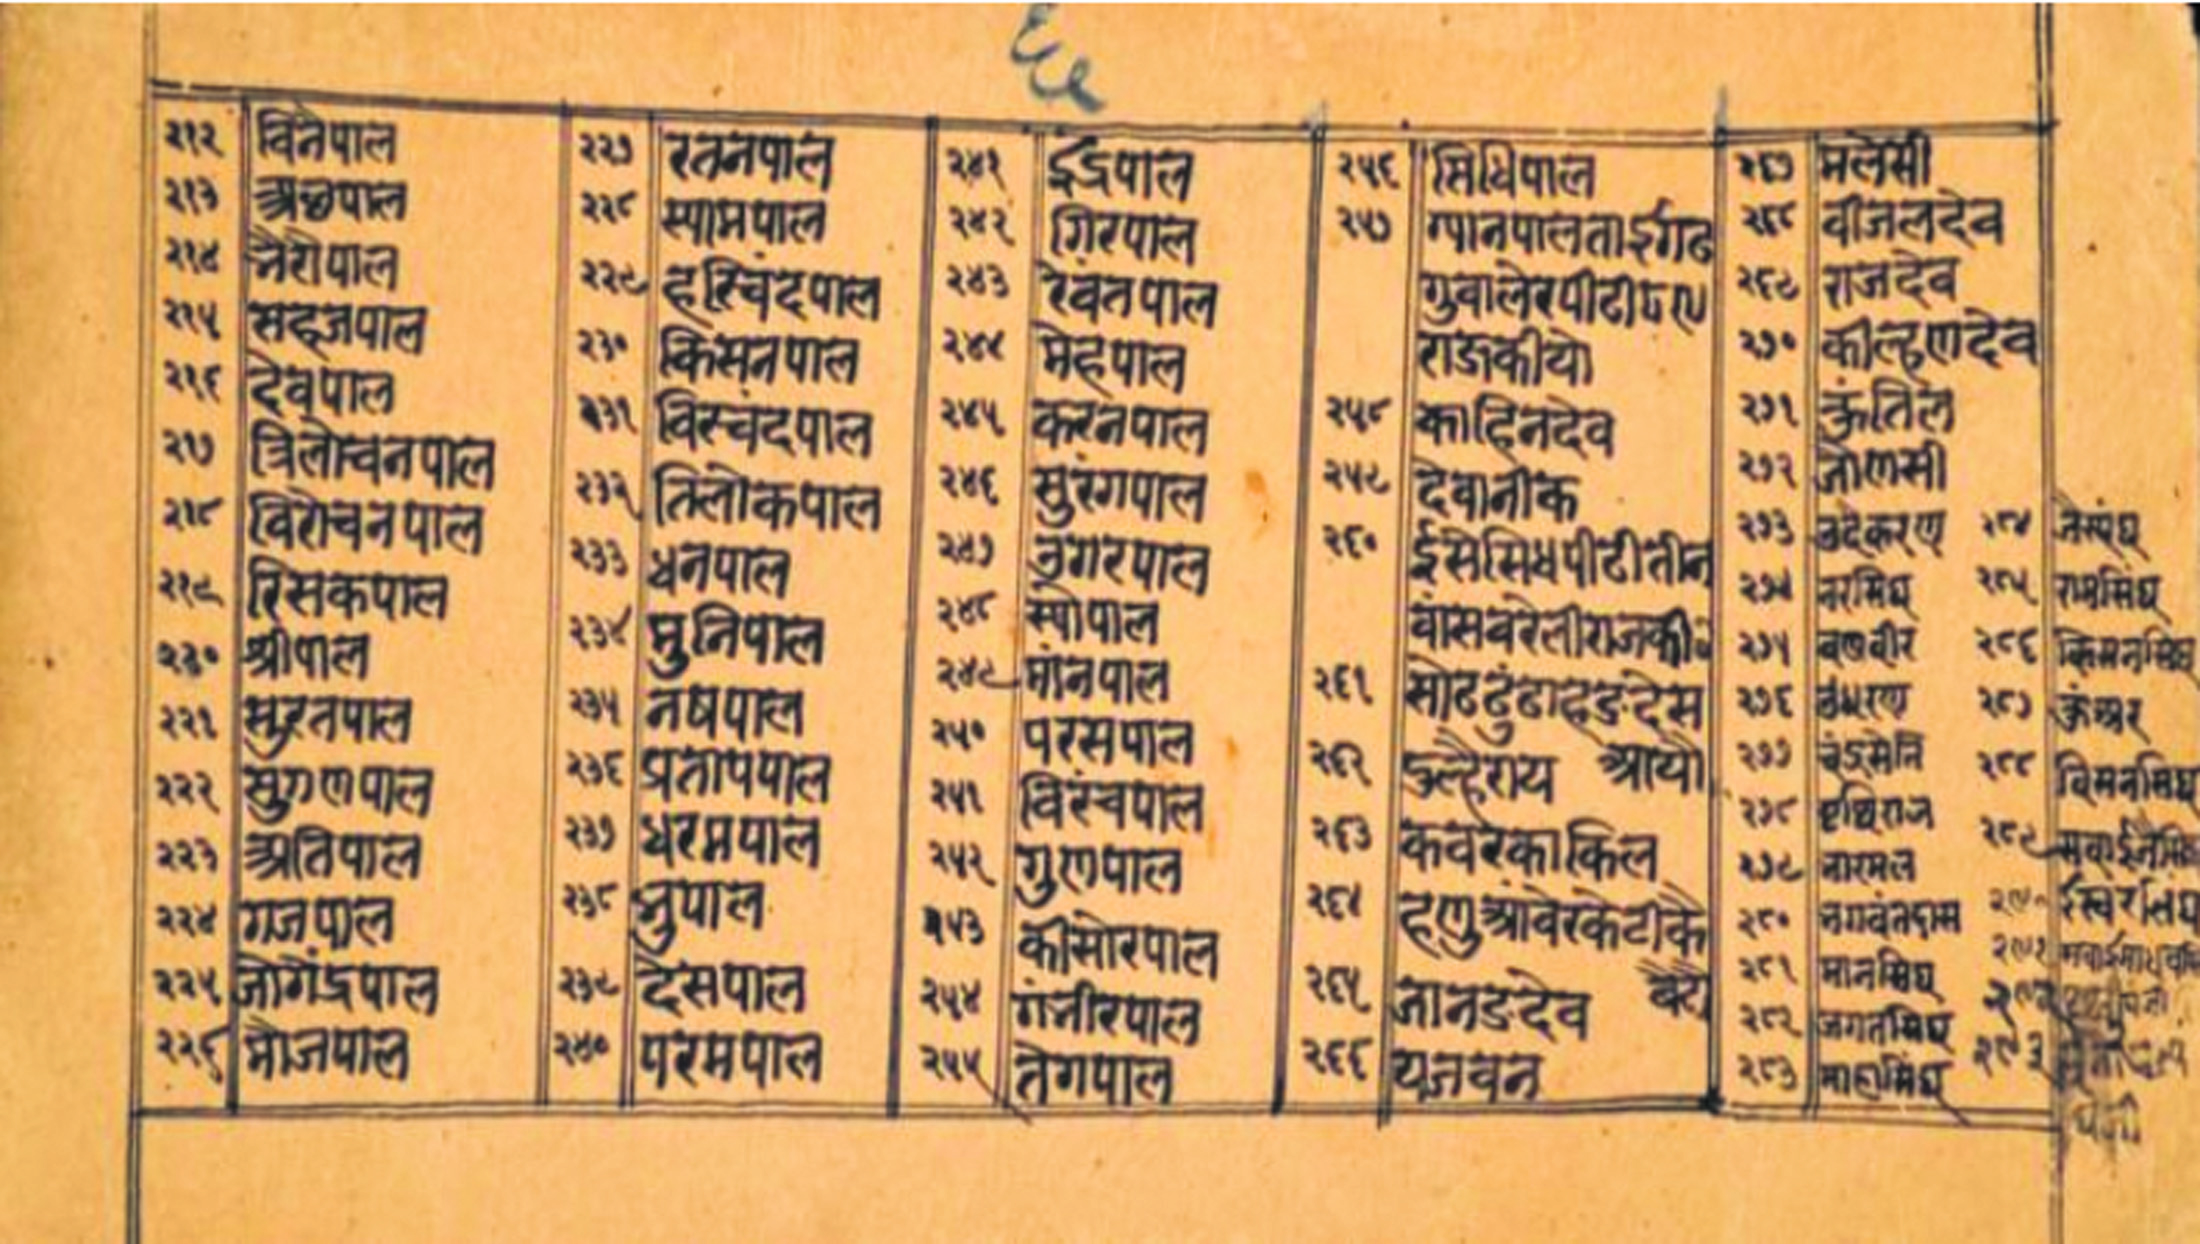 २१२ विनेपाल
२१३ अछपाल
२१४ नैरोपाल
२१५ सहजपाल
२१६ देवपाल
२१७ त्रिलोचनपाल
२१८ विरोचनपाल
२१९ रिसकपाल
२२० श्रीपाल
२२१ सुरतपाल
२२२ सुगणपाल
२२३ अतिपाल
२२४ गजपाल
२२५ जोगेंद्रपाल
२२६ भोजपाल
२२७ रतनपाल
२२८ स्यामपाल
२२९ हरिचंदपाल
२३० किसनपाल
२३१ विरचंदपाल
२३२ तिलोकपाल
२३३ धनपाल
२३४ मुनिपाल
२३५ नषपाल
२३६ प्रतापपाल
२३७ धरमपाल
२३८ भुपाल
२३९ देसपाल
२४० परमपाल
२४१ ईद्रपाल
२४२ गिरपाल
२४३ रेवतपाल
२४४ मेहपाल
२४५ करनपाल
२४६ सुरंगपाल
२४७ उगरपाल
२४८ स्योपाल
२४९ मांनपाल
२५० परसपाल
२५१ विरंचपाल
२५२ गुणपाल
२५३ कीसोरपाल
२५४ गंभीरपाल
२५५ तेगपाल
२५६ सिधिपाल
२५७ ग्यानपालताईगढ
गुवालेरपीढी
राजकीयो
२५८ काहिनदेव
२५९ देवानीक
२६० ईसेसिधपीढीतीन
वांसवरेलीराजकी
२६१ सोढढुंढाहडदेस
आयो
२६२ दुल्हैराय
२६३ कवरकाकिल
२६४ हणुआंवेरकेटीकै
बैठो
२६५ जानडदेव
२६६ यजवन
२६७ मलेसी
२६८ वीजलदेव
२६९ राजदेव
२७० कील्हणदेव
२७१ कुंतिल
२७२ जोणसी
२७३ उदेकरण
२७४ नरसिंघ
२७५ वणवीर
२७६ उधरण
२७७ चंद्रसेनि
२७८ प्रथिराज
२७९ भारमल
२८० भगवंतदास
२८१ मानसिंघ
२८२ जगतसिंघ
२८३ माहासिंघ
२८४ जैस्यंघ
२८५ रामसिंघ
२८६ किसनसिंघ
२८७ कुंअर
२८८ विसनसिंघ
२८९ सवाईजैसिंघ
२९० ईस्वरसिंघ